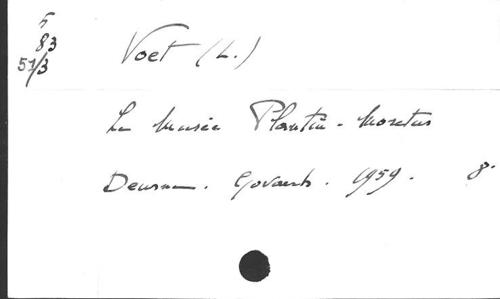 5
83
51/3
Voet (L.)
Le Musée Plantin - Moretus
Deurne. Govaerts. 1959. 8°